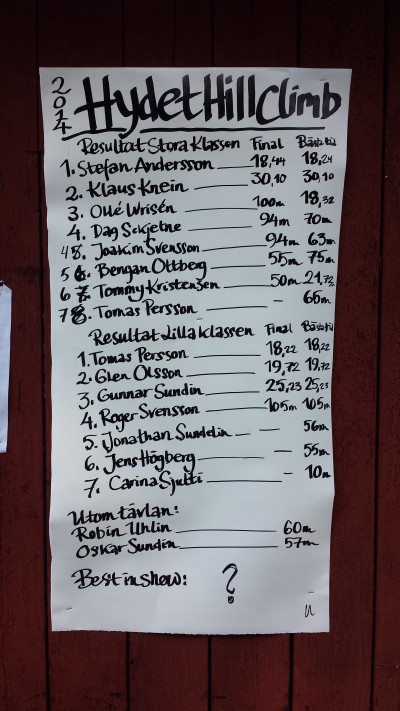 2014 Hydet Hill Climb
Resultat Stora Klassen Final Bästa tid
1. Stefan Andersson 18,44 18,24
2. Klaus Knein 30,10 30,10
3. Ollé Wrisén 100m 18,32
4. Dag Sckjetne 94m 70m
4 5. Joakim Svensson 94m 63m
5 6. Bengan Ottberg 55m 75m
6 7. Tommy Kristensen 50m 21,72
7 8. Tomas Persson – 66m
Resultat Lilla klassen Final Bästa tid
1. Tomas Persson 18,22 18,22
2. Glen Olsson 19,72 19,72
3. Gunnar Sundin 25,23 25,23
4. Roger Svensson 105m 105m
5. Jonathan Sundelin – 56m
6. Jens Högberg – 55m
7. Carina Sjutti – 10m
Utom tävlan:
Robin Uhlin 60m
Oskar Sundin 57m
Best in show: ?